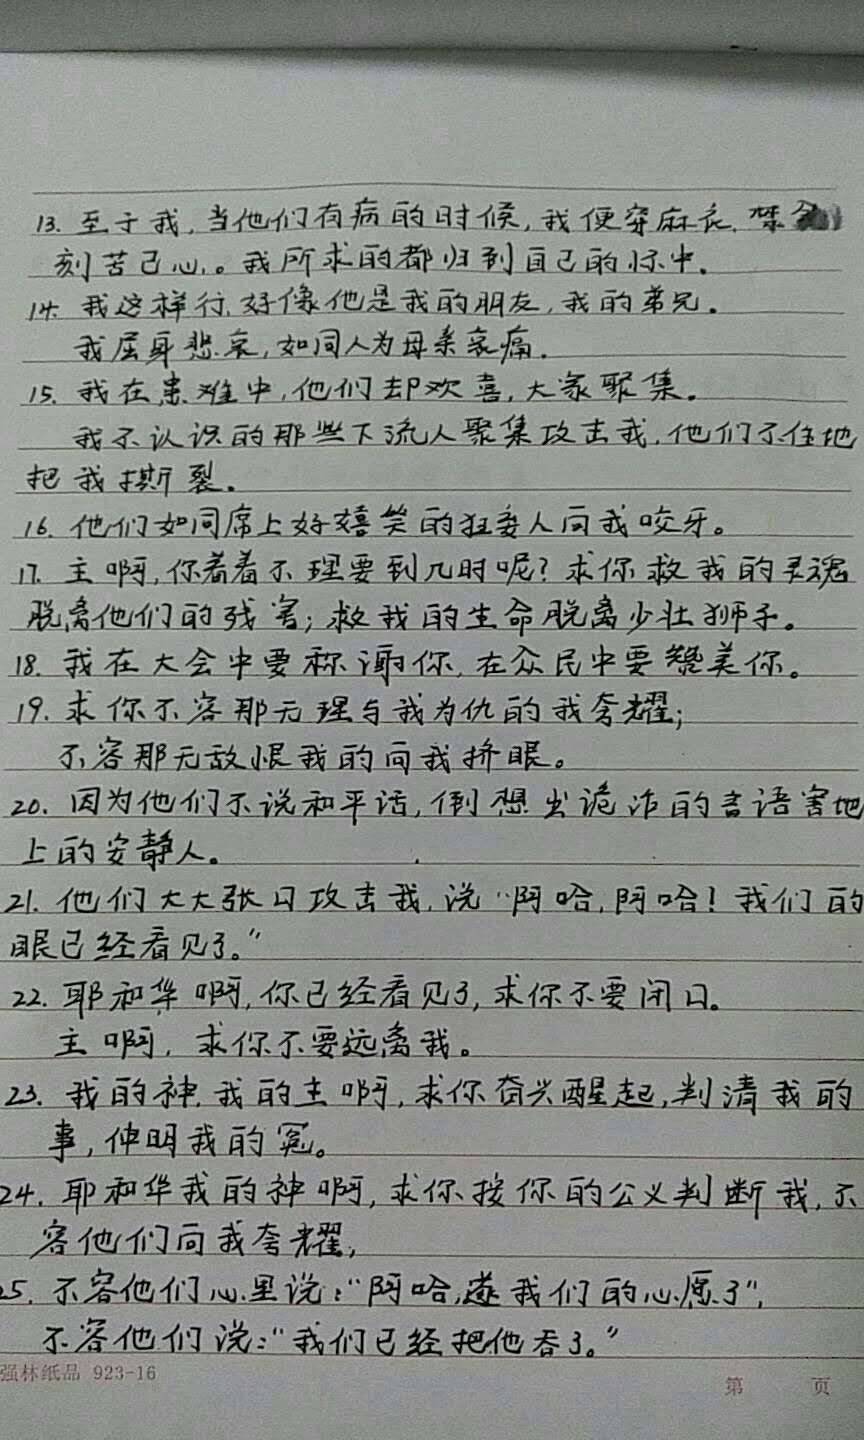 13. 至于我,当他们有病的时候,我便穿麻衣.禁食
刻苦己心。我所求的都归到自己的怀中.
14. 我这样行.好像他是我的朋友,我的弟兄。
我屈身悲哀,如同人为母亲哀痛.
15. 我在患难中,他们却欢喜,大家聚集。
我不认识的那些下流人聚集攻击我.他们不住地
把我撕裂.
16. 他们如同席上好嬉笑的狂妄人向我咬牙。
17. 主啊,你看着不理要到几时呢?求你救我的灵魂
脱离他们的残害;救我的生命脱离少壮狮子。
18. 我在大会中要称谢你,在众民中要赞美你。
19. 求你不容那无理与我为仇的我夸耀;
不容那无敌恨我的向我挤眼。
20. 因为他们不说和平话,倒想出诡诈的言语害地
上的安静人。
21. 他们大大张口攻击我.说“阿哈,阿哈!我们的
眼已经看见了。”
22. 耶和华啊,你已经看见了,求你不要闭口。
主啊,求你不要远离我。
23. 我的神.我的主啊,求你奋兴醒起,判清我的
事,伸明我的冤。
24. 耶和华我的神啊,求你按你的公义判断我,不
容他们向我夸耀,
25. 不容他们心里说:“阿哈,遂我们的心愿了”,
不容他们说:“我们已经把他吞了。”
强林纸品 923-16
第 页